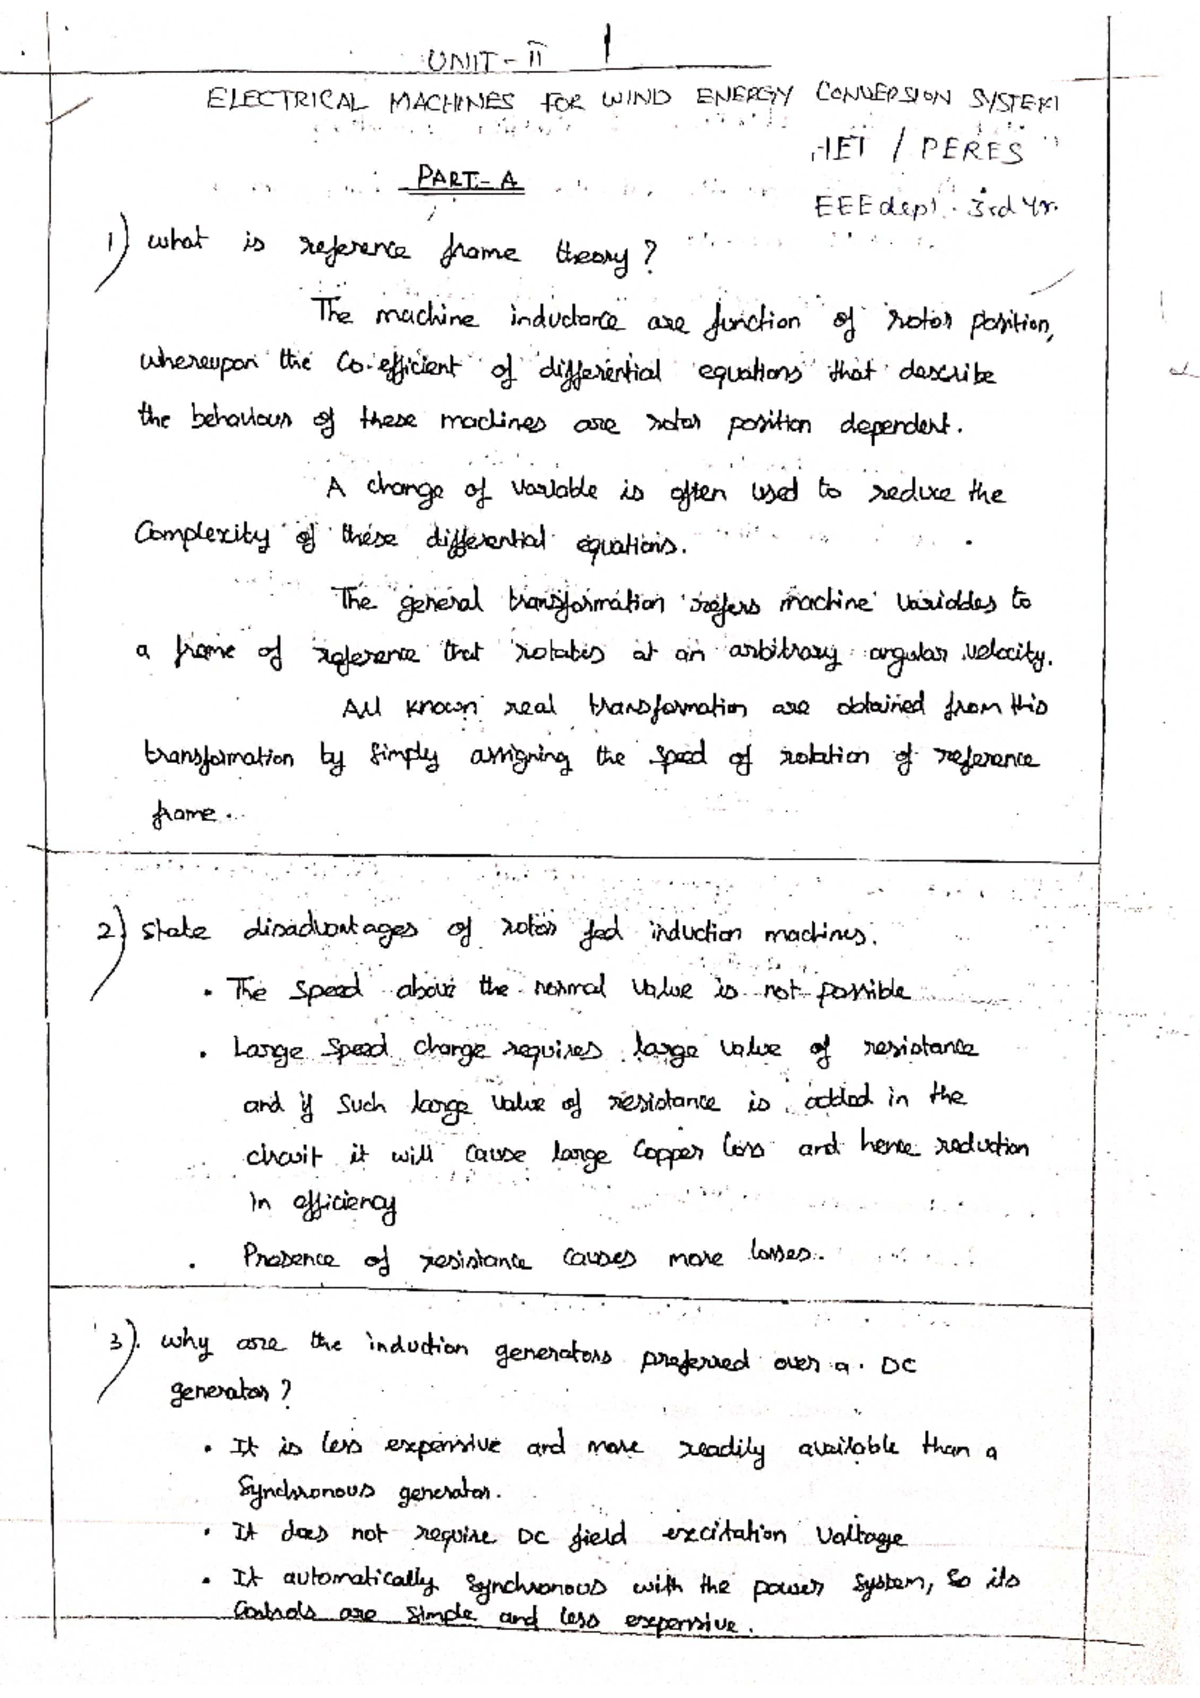 UNIT - II 1
ELECTRICAL MACHINES FOR WIND ENERGY CONVERSION SYSTEM
IET / PERES
PART - A
EEE dept. 3rd Yr.
1) What is reference frame theory?
The machine inductance are function of rotor position,
whereupon the Co-efficient of differential equations that describe
the behaviour of these machines are rotor position dependent.
A change of variable is often used to reduce the
Complexity of these differential equations.
The general transformation refers machine variables to
a frame of reference that rotates at an arbitrary angular velocity.
All known real transformation are obtained from this
transformation by simply assigning the speed of rotation of reference
frame.
2) State disadvantages of rotor fed induction machines.
• The speed above the normal value is not possible
• Large speed change requires large value of resistance
and if such large value of resistance is added in the
circuit it will cause large copper loss and hence reduction
in efficiency
• Presence of resistance causes more losses.
3). Why are the induction generators preferred over a DC
generator?
• It is less expensive and more readily available than a
Synchronous generator.
• It does not require DC field excitation Voltage
• It automatically synchronous with the power system, so its
Controls are simple and less expensive.